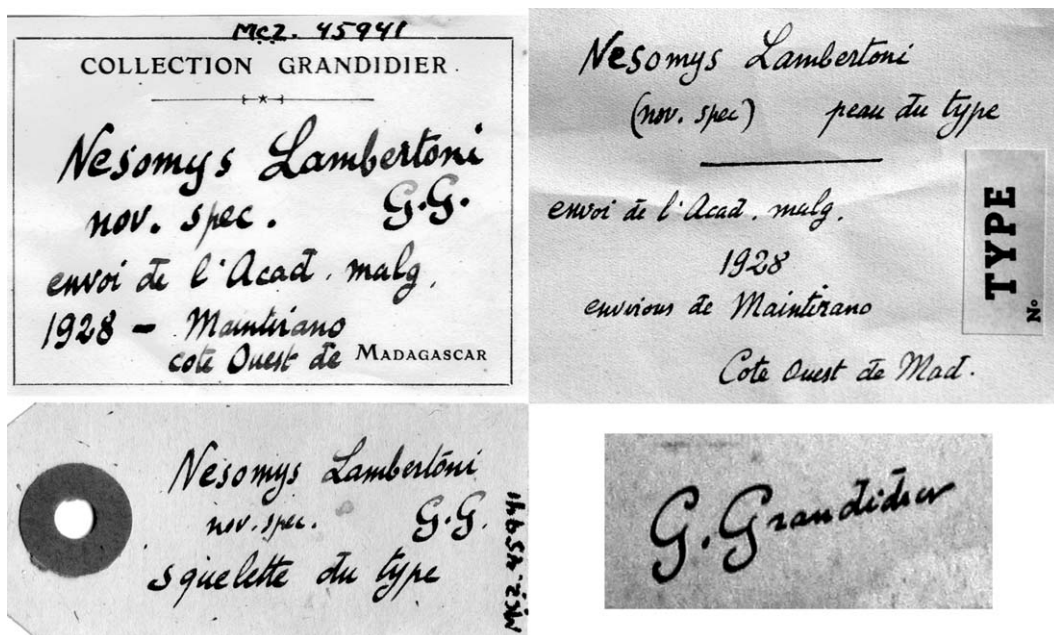 MCZ. 45941
COLLECTION GRANDIDIER.
Nesomys Lambertoni
nov. spec. G.G.
envoi de l'Acad. malg.
1928 – Maintirano
cote Ouest de MADAGASCAR
Nesomys Lambertoni
(nov. spec) peau du type
envoi de l'Acad. malg.
1928
environs de Maintirano
Cote Ouest de Mad.
TYPE
No
Nesomys Lambertoni
nov. spec. G.G.
squelette du type
MCZ. 45941
G. Grandidier